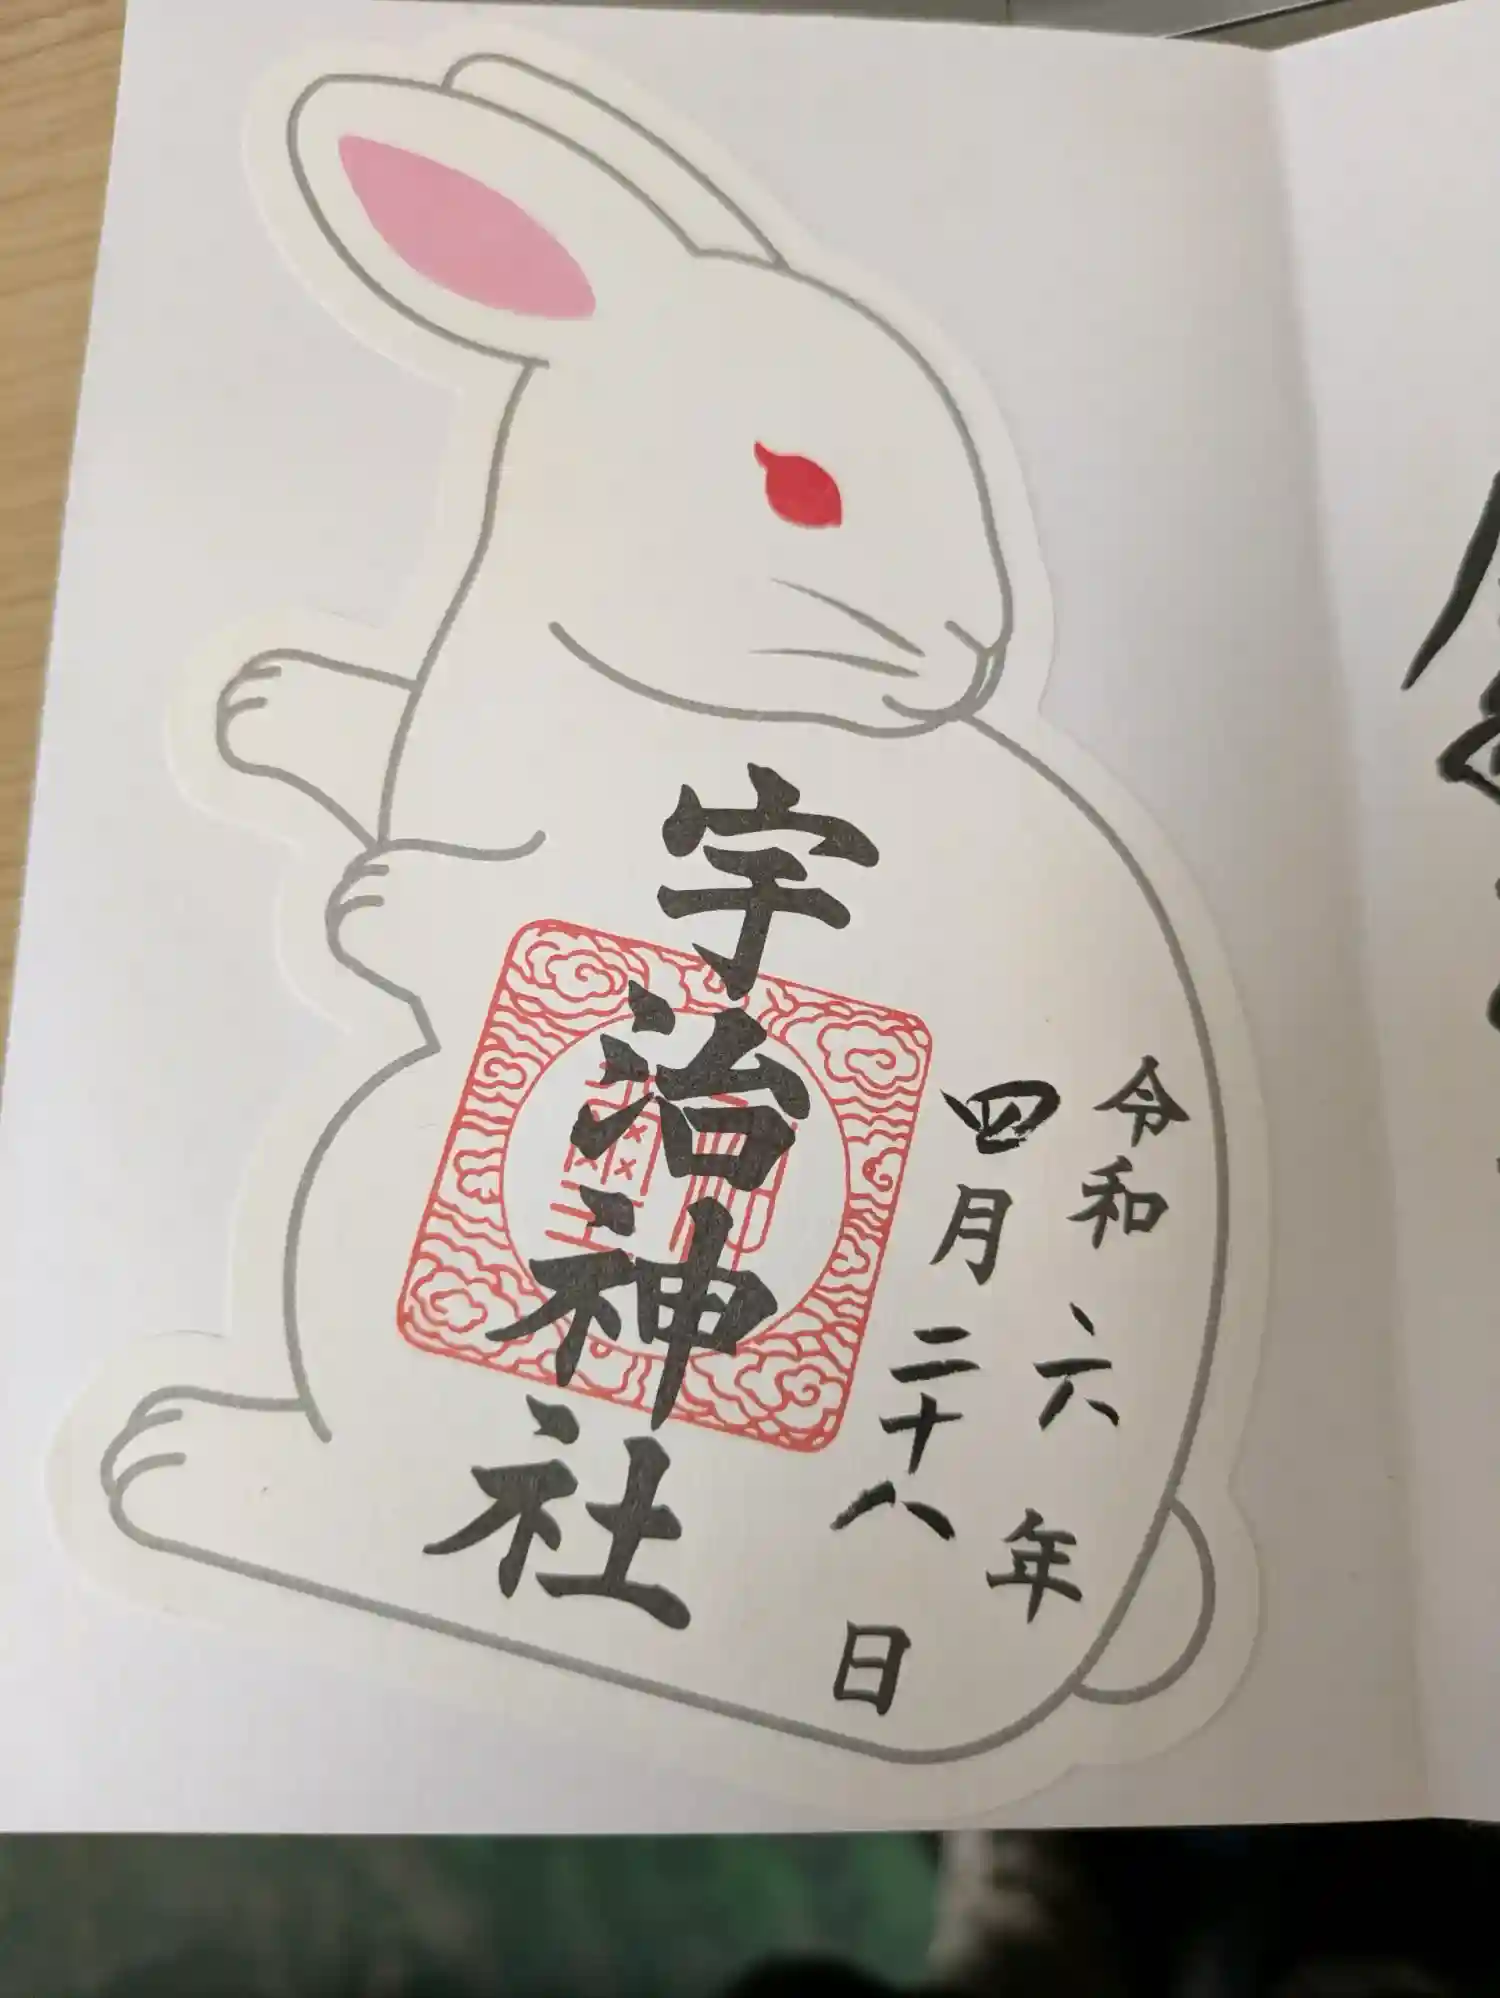 令和六年
四月二十八日
宇治神社